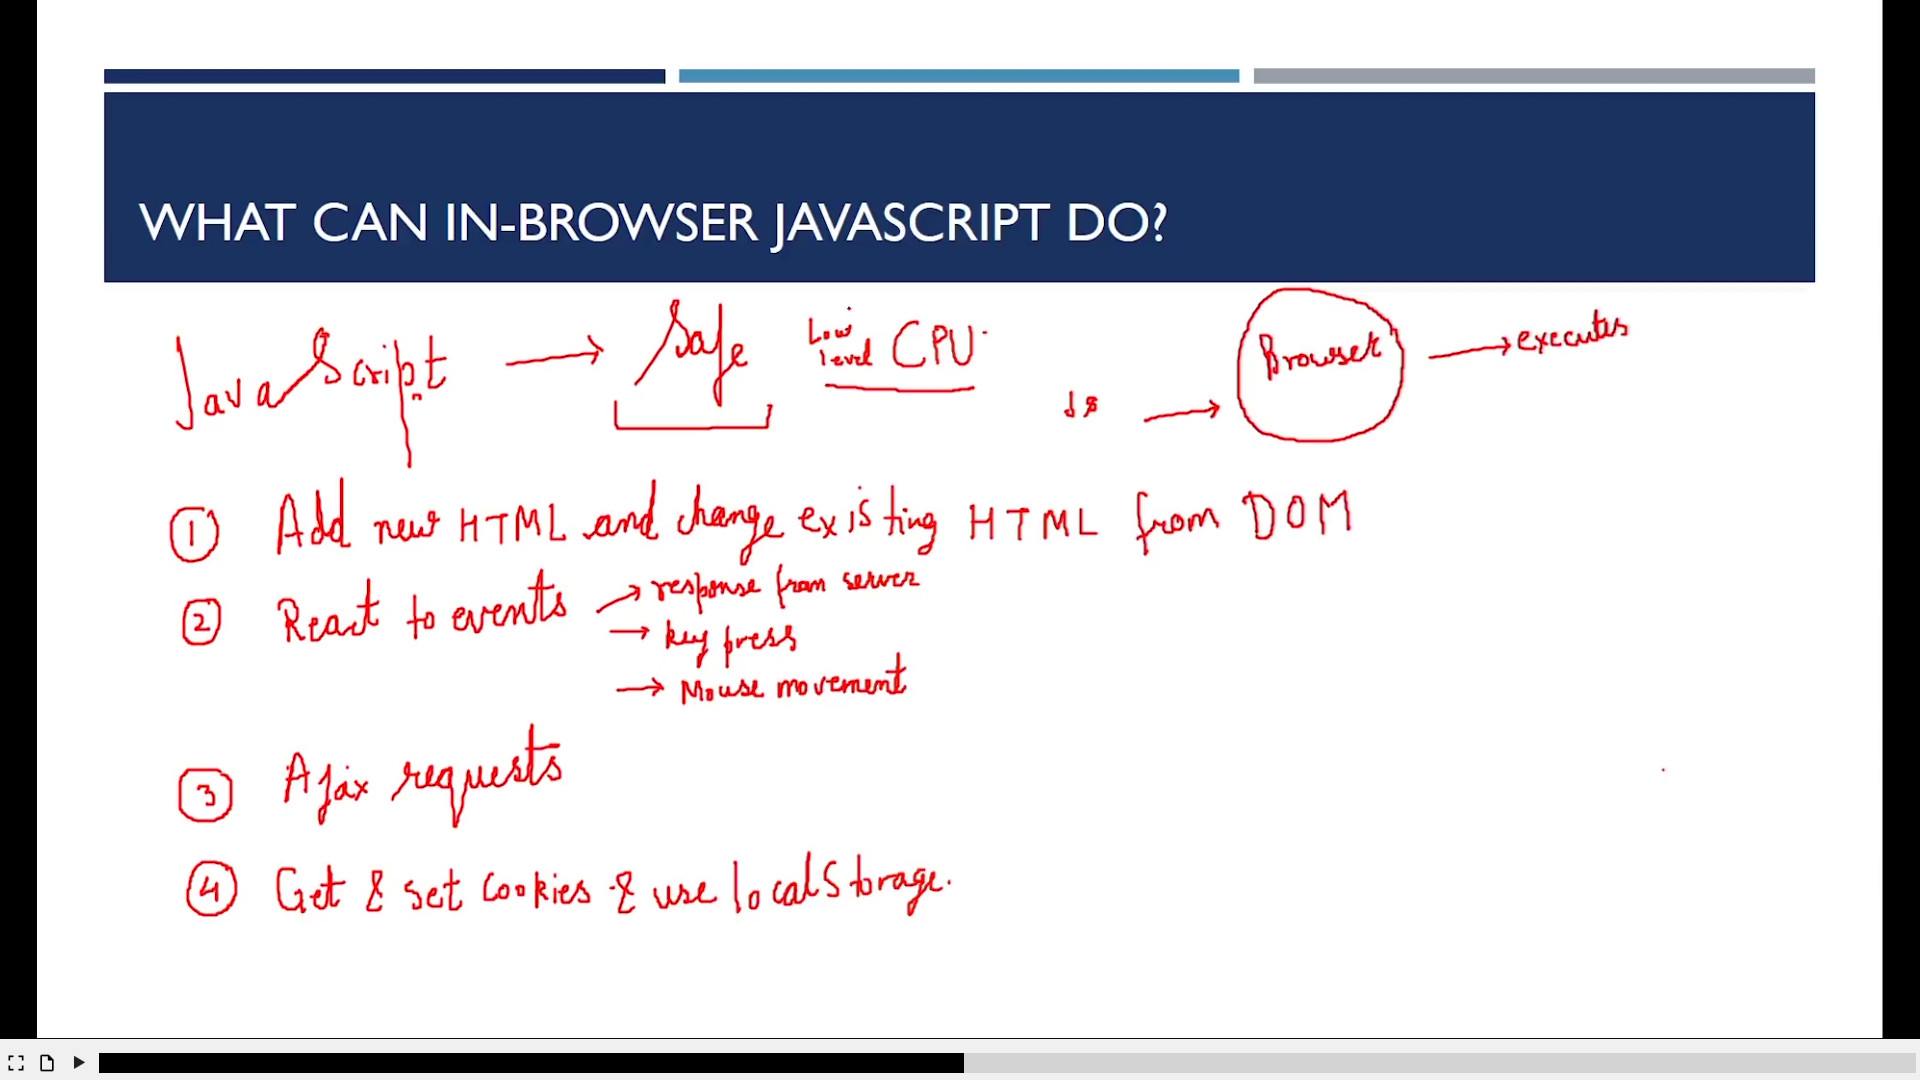 WHAT CAN IN-BROWSER JAVASCRIPT DO?
JavaScript → Safe Low level CPU
JS → Browser → executes
1 Add new HTML and change existing HTML from DOM
2 React to events → response from server
→ key press
→ Mouse movement
3 Ajax requests
4 Get & set cookies & use localStorage.